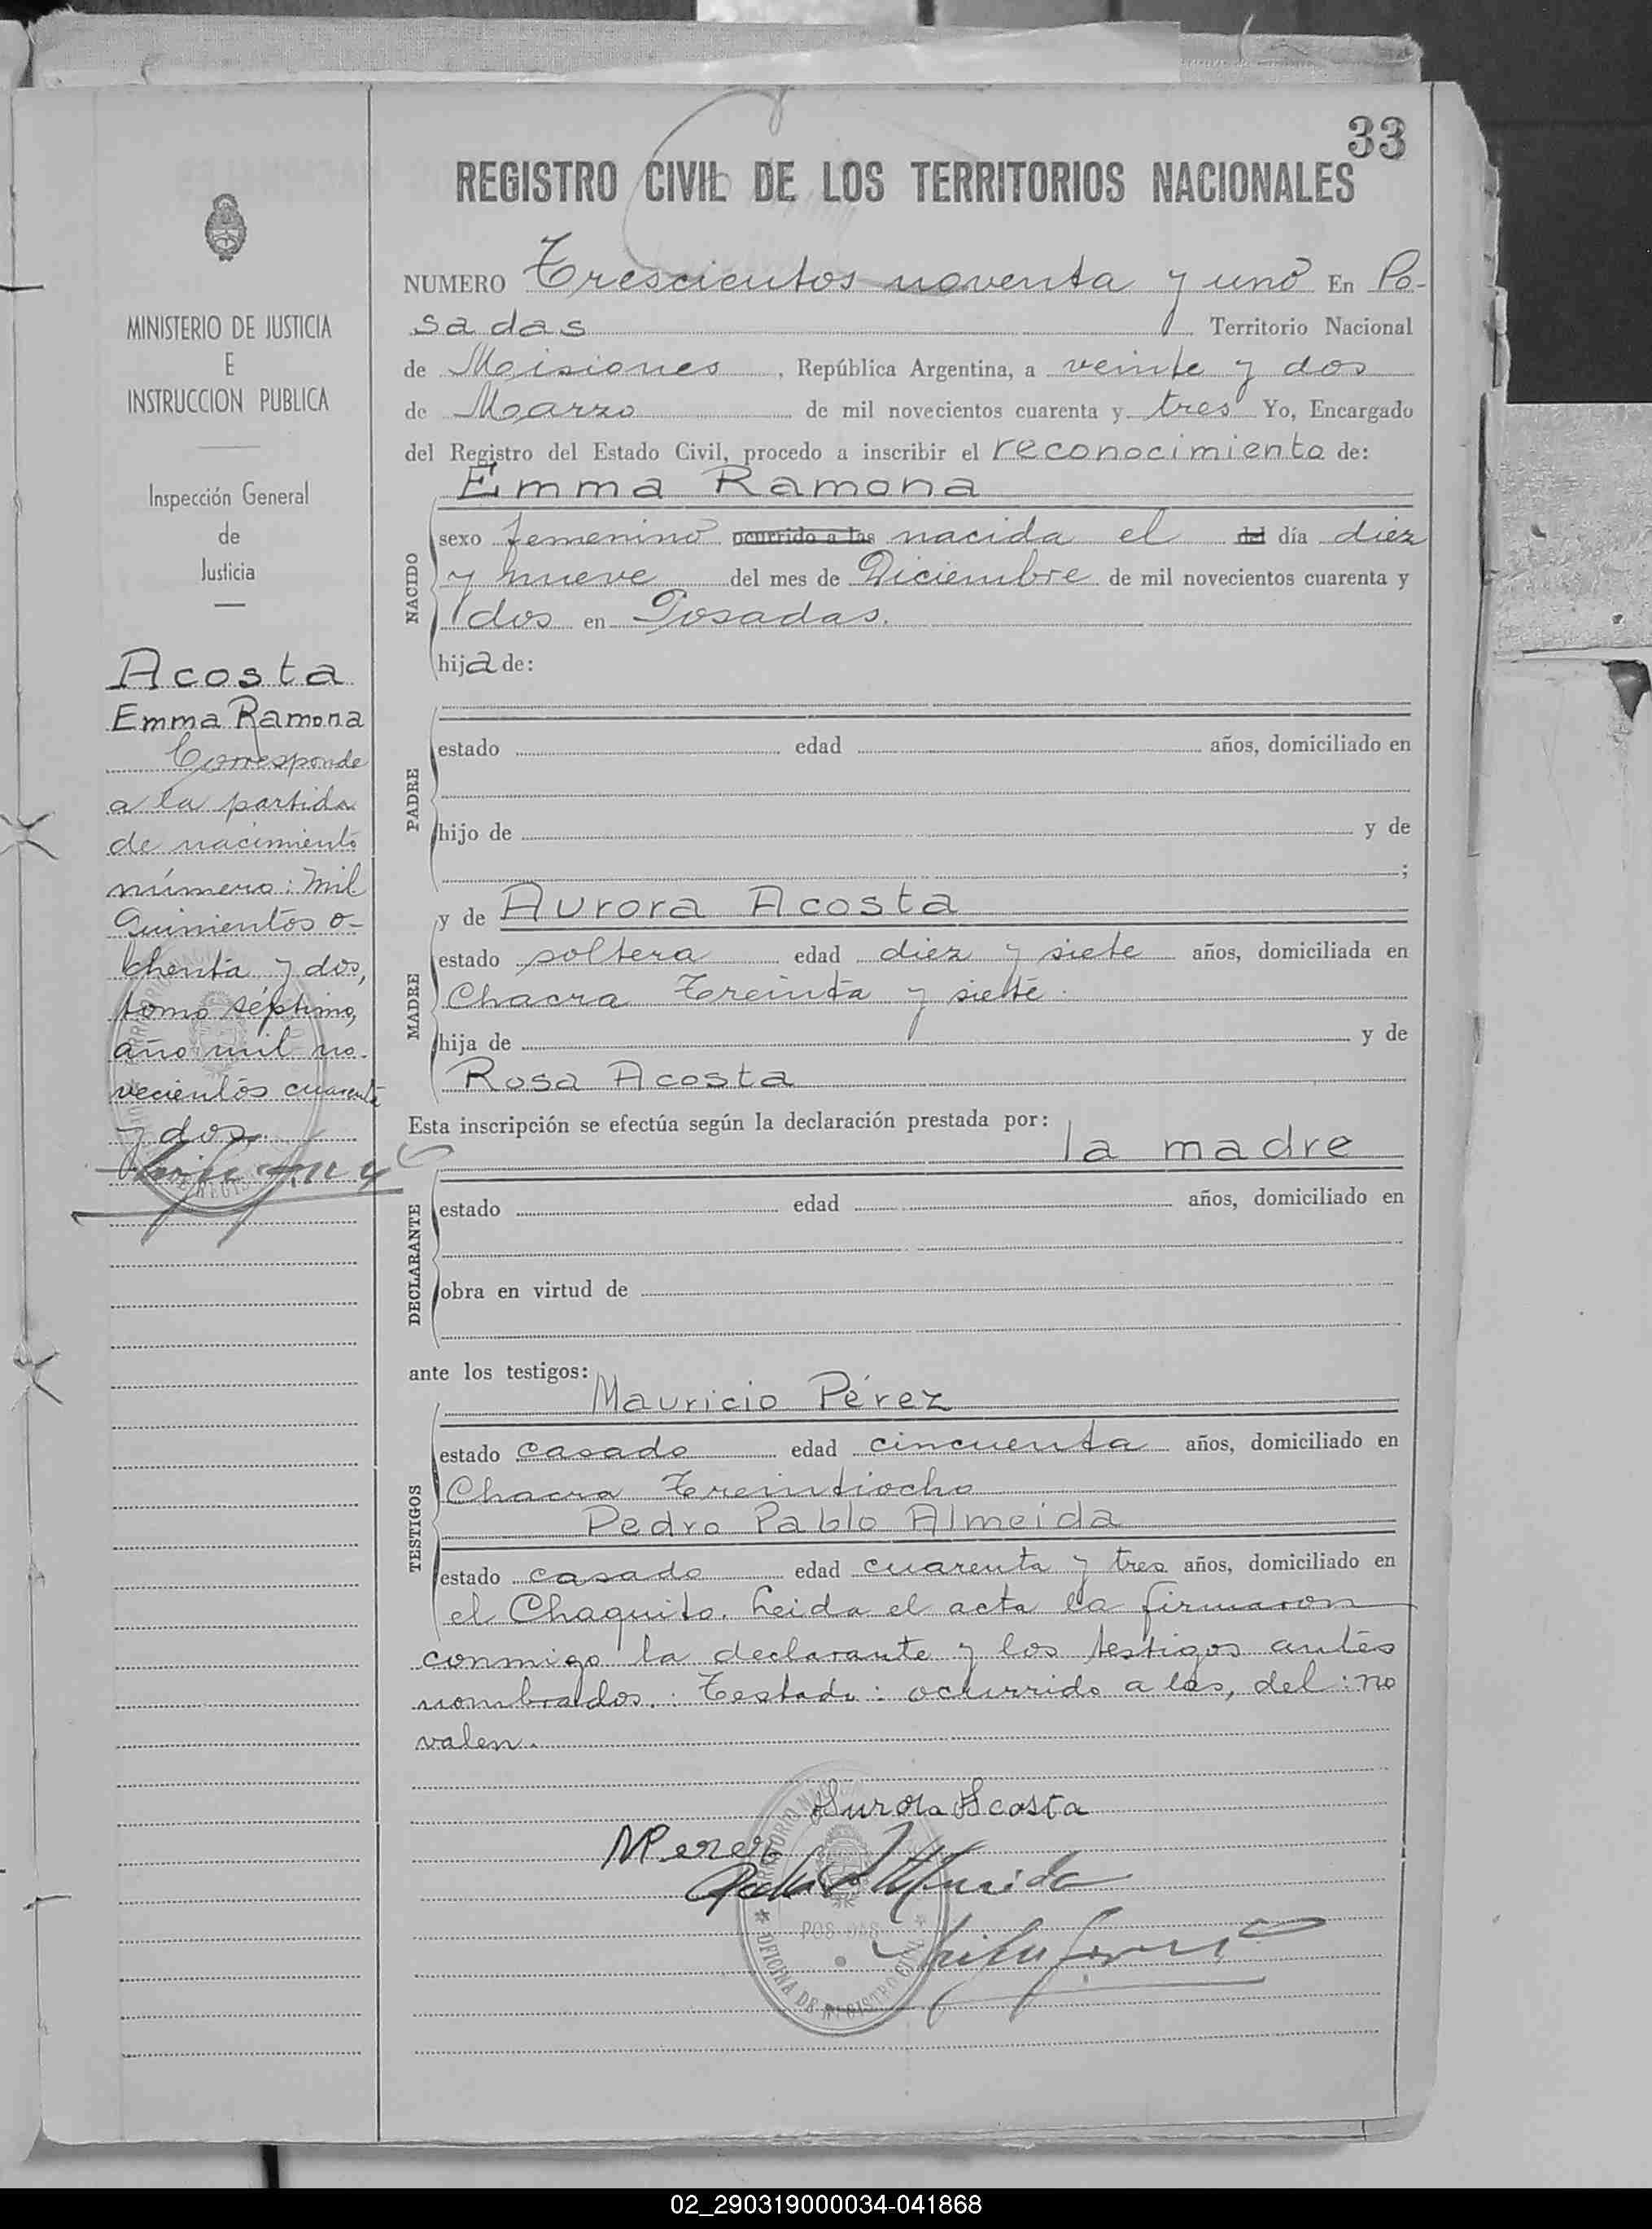 33
REGISTRO CIVIL DE LOS TERRITORIOS NACIONALES
MINISTERIO DE JUSTICIA
E
INSTRUCCION PUBLICA
Inspección General
de
Justicia
Acosta
Emma Ramona
Corresponde
a la partida
de nacimiento
número: mil
Quinientos o-
chenta y dos,
tomo séptimo,
año mil no-
vecientos cuarenta
y dos.
NUMERO Trescientos noventa y uno En Po-
sadas Territorio Nacional
de Misiones, República Argentina, a veinte y dos
de Marzo de mil novecientos cuarenta y tres Yo, Encargado
del Registro del Estado Civil, procedo a inscribir el reconocimiento de:
Emma Ramona
NACIDO
sexo femenino ocurrido a las nacida el del día diez
y nueve del mes de Diciembre de mil novecientos cuarenta y
dos en Posadas.
hija de:
PADRE
estado edad años, domiciliado en
hijo de y de
;
MADRE
y de Aurora Acosta
estado soltera edad diez y siete años, domiciliada en
Chacra Treinta y siete.
hija de y de
Rosa Acosta
Esta inscripción se efectúa según la declaración prestada por:
la madre
DECLARANTE
estado edad años, domiciliado en
obra en virtud de
ante los testigos:
Mauricio Pérez
TESTIGOS
estado casado edad cincuenta años, domiciliado en
Chacra Treintiocho
Pedro Pablo Almeida
estado casado edad cuarenta y tres años, domiciliado en
el Chaquito. Leida el acta la firmaron
conmigo la declarante y los testigos antes
nombrados.: Testado: ocurrido a las, del: no
valen.
Aurora Acosta
MPerez
Almeida
POSADAS
OFICINA DE REGISTRO CIVIL
02_290319000034-041868